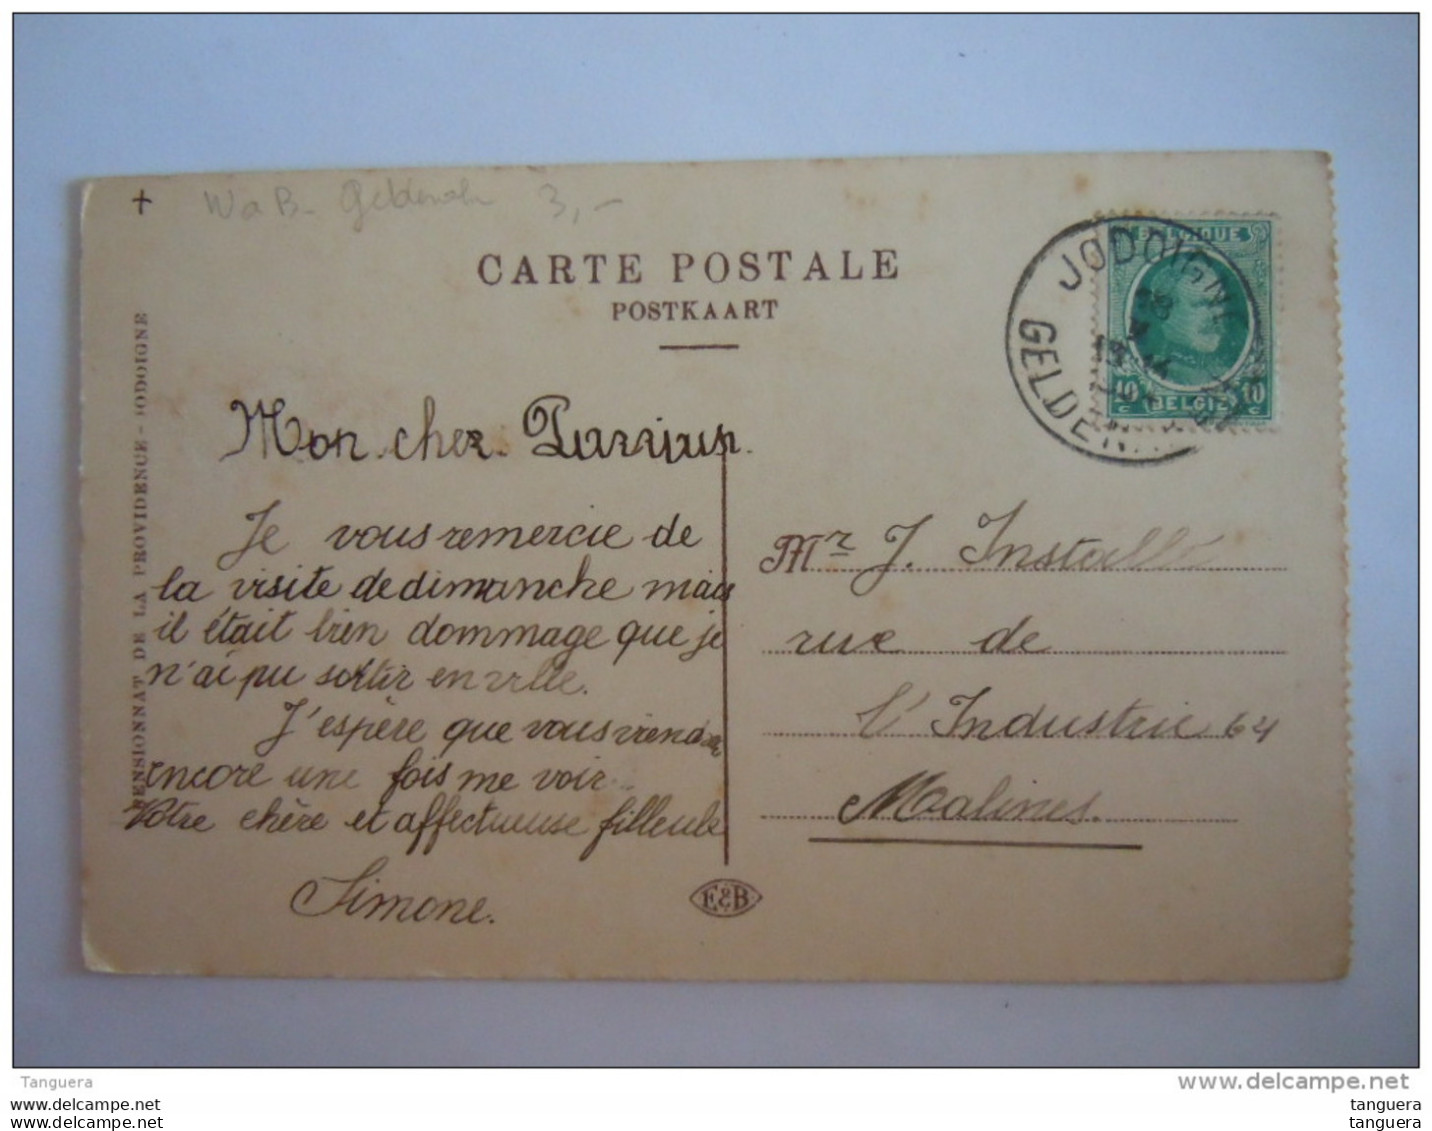 + WaB- Geldenak 3,-
CARTE POSTALE
POSTKAART
PENSIONNAT DE LA PROVIDENCE - JODOIGNE
JODOIGNE
GELDEN
BELGIQUE
10 10
BELGIË
Mon cher Parrain.
Je vous remercie de
la visite de dimanche mais
il était bien dommage que je
n'ai pu sortir en ville.
J'espère que vous viendrez
encore une fois me voir.
Votre chère et affectueuse filleule
Simone.
E&B
Mr J. Installé
rue de
l'Industrie 64
Malines.
Tanguera
tanguera
tanguera
www.delcampe.net
tanguera
tanguera